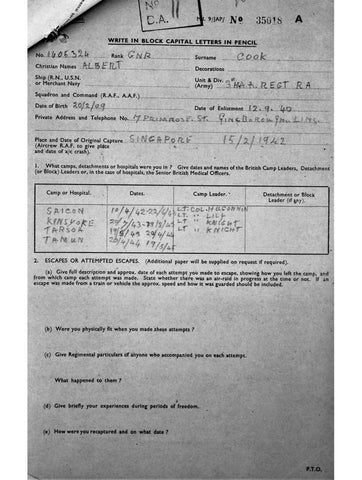 II
D.A.
M.I. 9/JAP/ No 35018 A
WRITE IN BLOCK CAPITAL LETTERS IN PENCIL
No. 1605324 Rank GNR Surname COOK
Christian Names ALBERT Decorations
Ship (R.N., U.S.N. or Merchant Navy) Unit & Div. (Army) A.A. REGT RA
Squadron and Command (R.A.F., A.A.F.)
Date of Birth 20/2/09 Date of Enlistment 12.9.40
Private Address and Telephone No. 7 PRIMROSE. ST.
Place and Date of Original Capture SINGAPORE 15/2/1942
(Aircrew R.A.F. to give place and date of a/c crash).
1. What camps, detachments or hospitals were you in? Give dates and names of the British Camp Leaders, Detachment (or Block) Leaders or, in case of hospitals, the Senior British Medical Officers.
Camp or Hospital. Dates. Camp Leader. Detachment or Block Leader (if any).
SAICON 10/4/42-22/6/43 LT. COL.
KINSYOKE LT " LILY
TARSOA 29/4/44 LT " KNIGHT
TAMUN 20/4/44 LT " KNIGHT
2. ESCAPES OR ATTEMPTED ESCAPES. (Additional paper will be supplied on request if required).
(a) Give full description and approx. date of each attempt you made to escape, showing how you left the camp, and from which camp each attempt was made. State whether there was an air-raid in progress at the time or not. If an escape was made from a train or vehicle the approx. speed and how it was guarded should be included.
(b) Were you physically fit when you made these attempts?
(c) Give Regimental particulars of anyone who accompanied you on each attempt.
What happened to them?
(d) Give briefly your experiences during periods of freedom.
(e) How were you recaptured and on what date?
P.T.O.